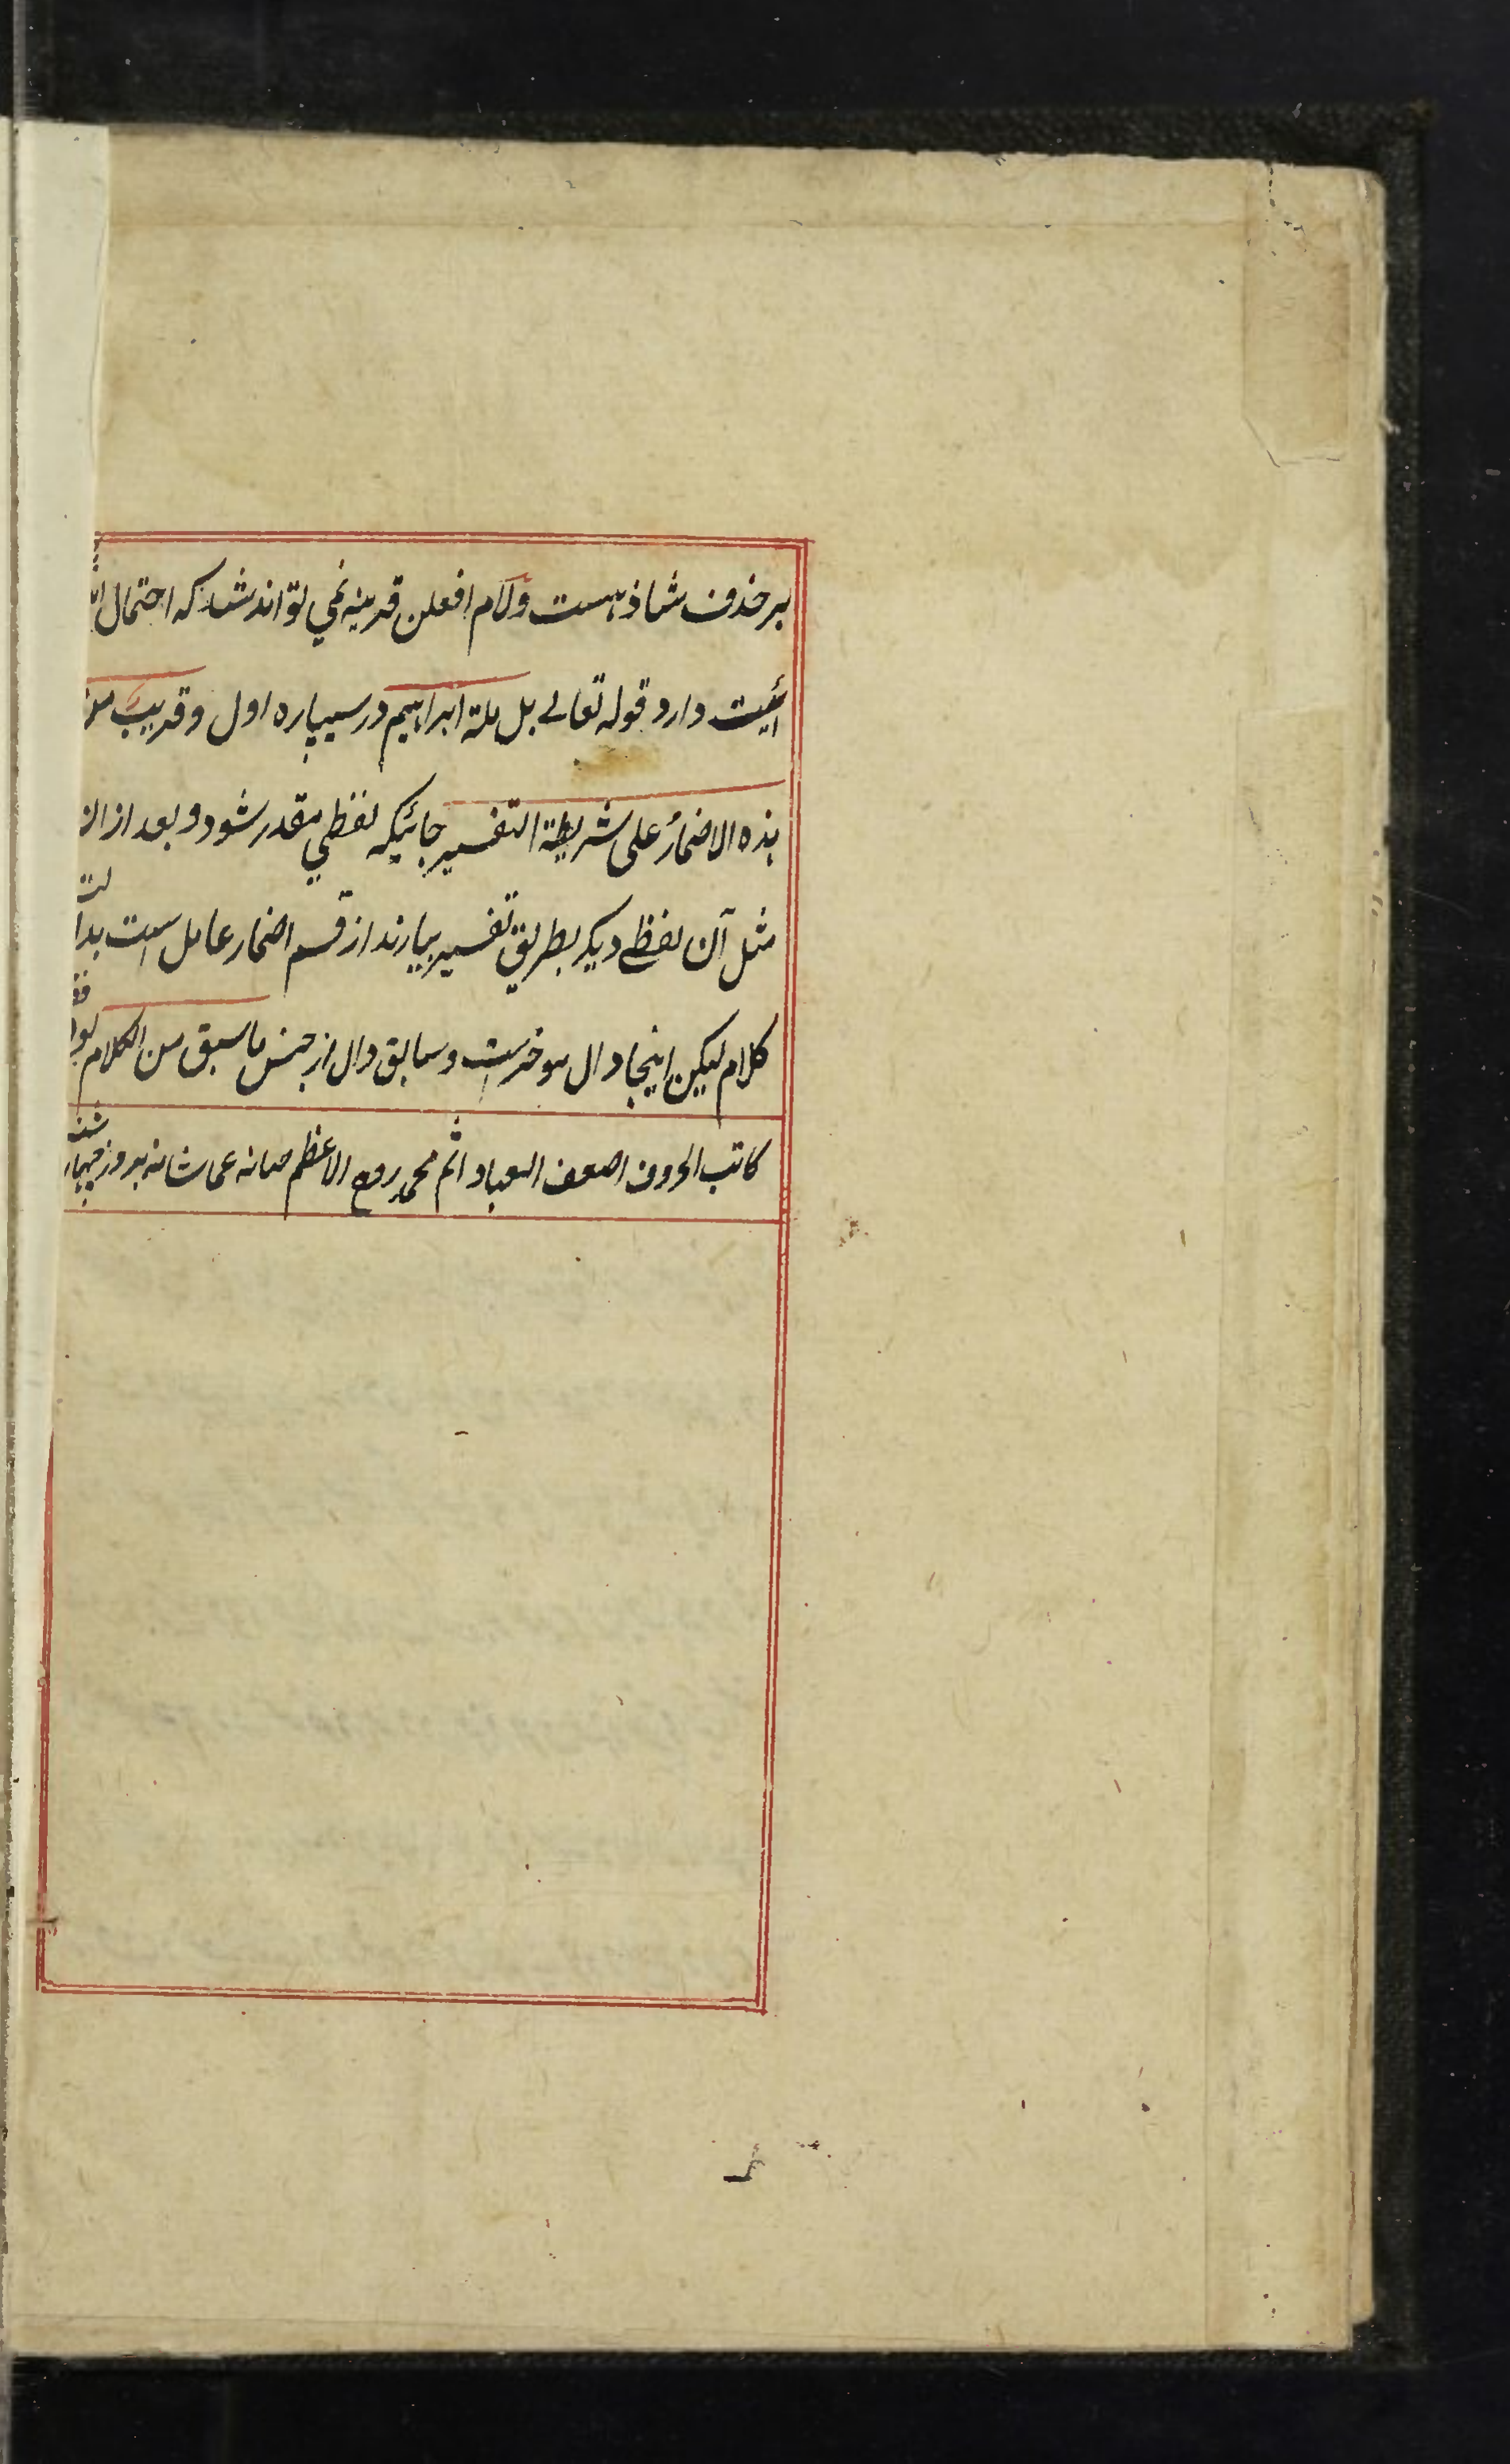 بر حذف شاذ هست و لام افعلن قرینه نمی تواند شد که احتمال
دارد قوله تعالے بل ملة ابراهیم در سیپاره اول و قریب من
هذه الاضمار علی شریطة التفسیر جائیکه لفظی مقدر شود و بعد ازان
مثل آن لفظے دیگر بطریق تفسیر بیارند از قسم اضمار عامل است
کلام لیکن اینجا دال موخرست و سابق دال از جنس ما سبق من الکلام
کاتب الحروف اضعف العباد اثم محمد الاعظم صانه عما شانه بروز